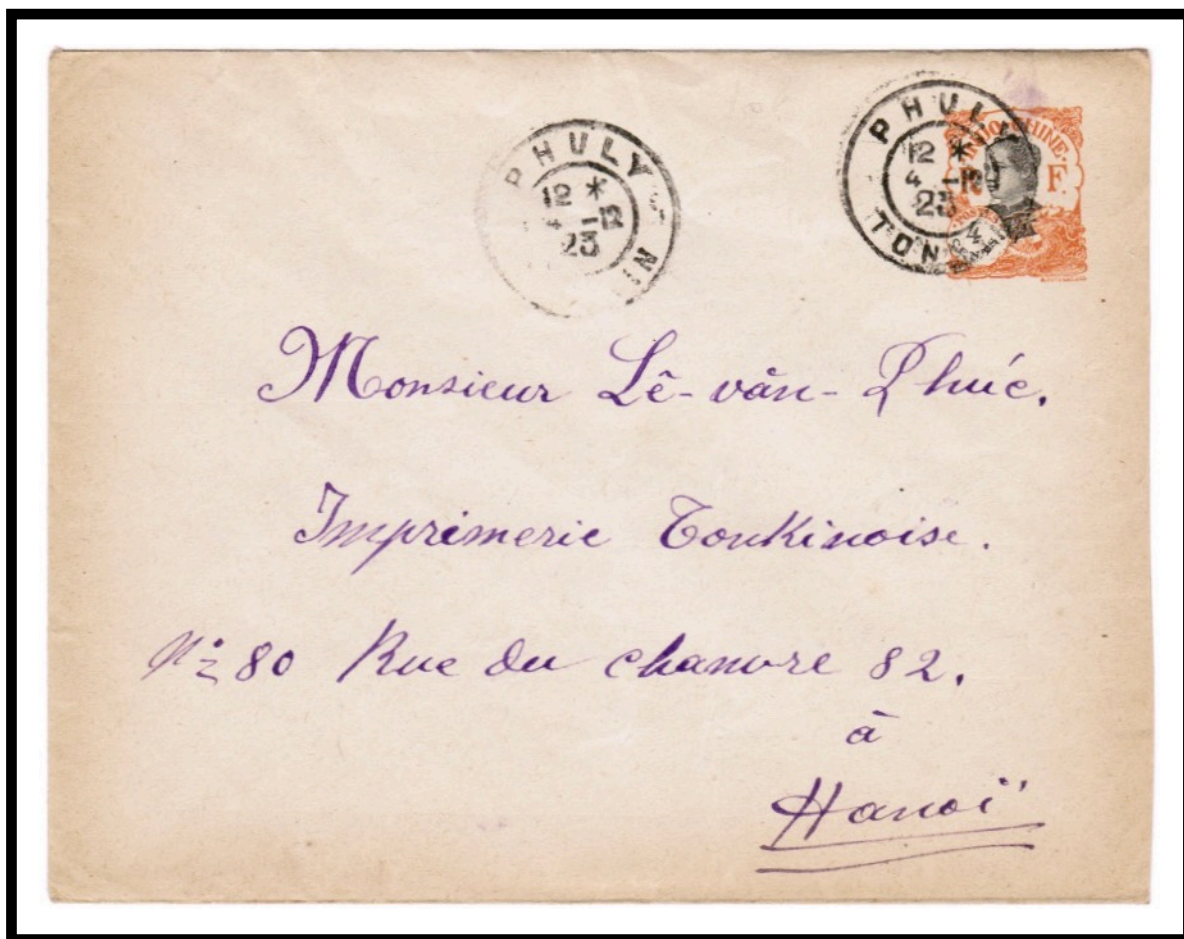 PHULY
12 *
4 -12
23
IN
PHULY
12 *
4 -12
23
TON
INDOCHINE
R F.
POSTES
4
CENTS
Monsieur Lê-văn-Phúc.
Imprimerie Tonkinoise.
Nº 80 Rue du chanvre 82.
à
Hanoï